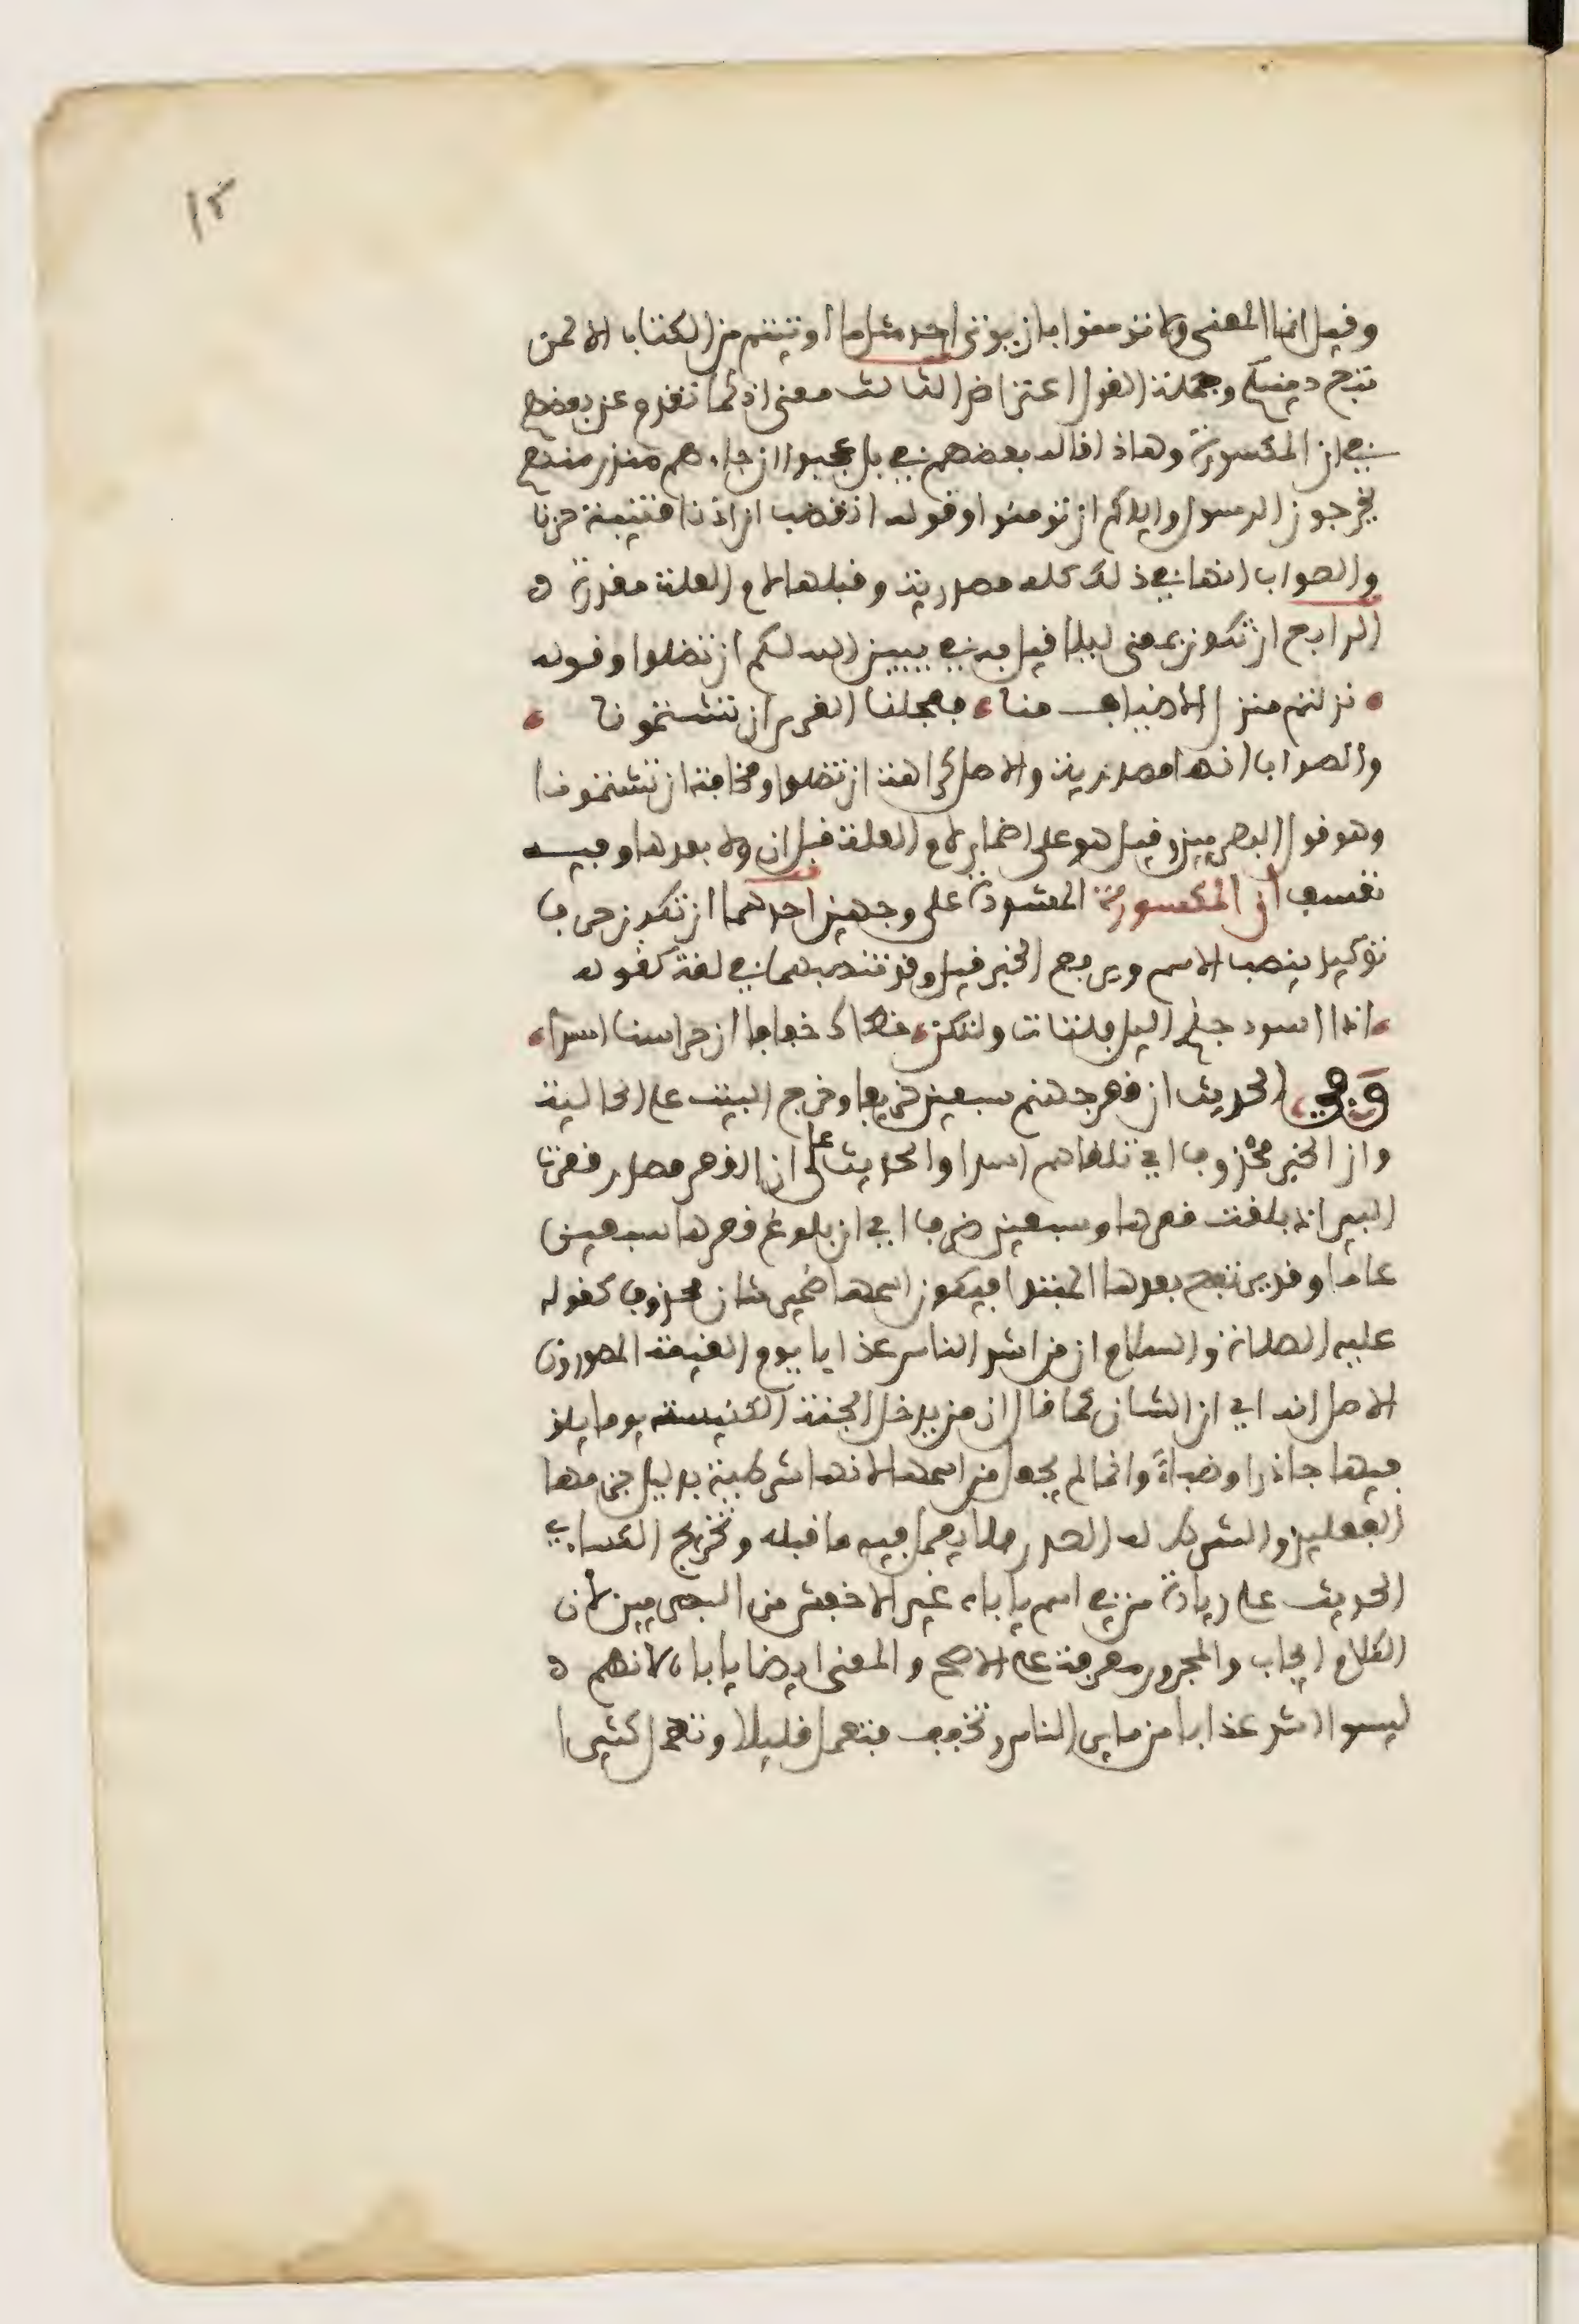 ١٣
وقيل انما المعنى ولا تومنوا بان يوتى احد مثل ما اوتيتم من الكتاب الا لمن
تبع دينكم وجملة القول اعتراض الثالث معنى اذ كما تقدم عن بعضهم
في ان المكسورة وهاذا قاله بعضهم في بل عجبوا ان جاءهم منذر منهم
يخرجون الرسول واياكم ان تومنوا وقوله اتغضب ان اذنا قتيبة حزتا
والصواب انها في ذلك كله مصدرية وقبلها لام العلة مقدرة ه
الرابع ان تكون بمعنى ليلا قيل به في يبين الله لكم ان تضلوا وقوله
نزلتم منزل الاضياف منا فعجلنا القرى ان تشتمونا
والصواب انها مصدرية والاصل كراهة ان تضلوا ومخافة ان تشتمونا
وهو قول البصريين وقيل هو على اضمار لام العلة قبل ان ولا بعدها وفيه
تعسف ان المكسورة المشددة على وجهين احدهما ان تكون حرف
توكيد ينصب الاسم ويرفع الخبر قيل وقد تنصبهما في لغة كقوله
اذا اسود جنح اليل فلتات ولتكن خطاك خفافا ان حراسنا اسدا
وفي الحديث ان قعر جهنم سبعين خريفا وخرج البيت على الحالية
وان الخبر محذوف اي تلقاهم اسدا والحديث على ان القعر مصدر قعرت
البير اذا بلغت قعرها وسبعين ظرف اي ان بلوغ قعرها سبعين
عاما وقد يرتفع بعدها المبتدا فيكون اسمها ضمير شان محذوف كقوله
عليه الصلاة والسلام ان من اشد الناس عذابا يوم القيمة المصورون
الاصل انه اي ان الشان كما قال ان من يدخل الجنة الكنيسة يوما يلق
فيها جاذرا وضباءً وانما لم يجعل من اسمها لانها شرطية بدليل جزمها
الفعلين والشرط له الصدر فلا يعمل فيه ما قبله وتخريج الكساءي
الحديث على زيادة من في اسم ياباه غير الاخفش من البصريين لان
الكلام ايجاب والمجرور معرفة على الاصح والمعنى ايضا ياباه لانهم ه
ليسوا اشد عذابا من ساير الناس وتخفف فتعمل قليلا وتهمل كثيرا